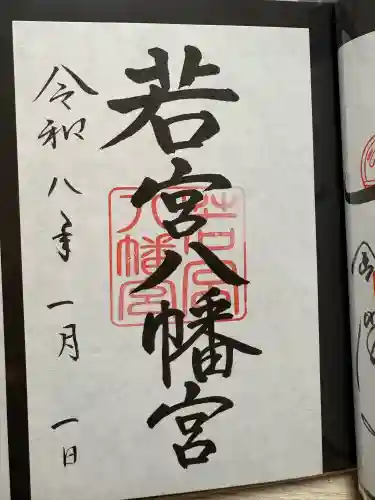 若宮八幡宮
若宮
八幡宮
令和八年一月一日